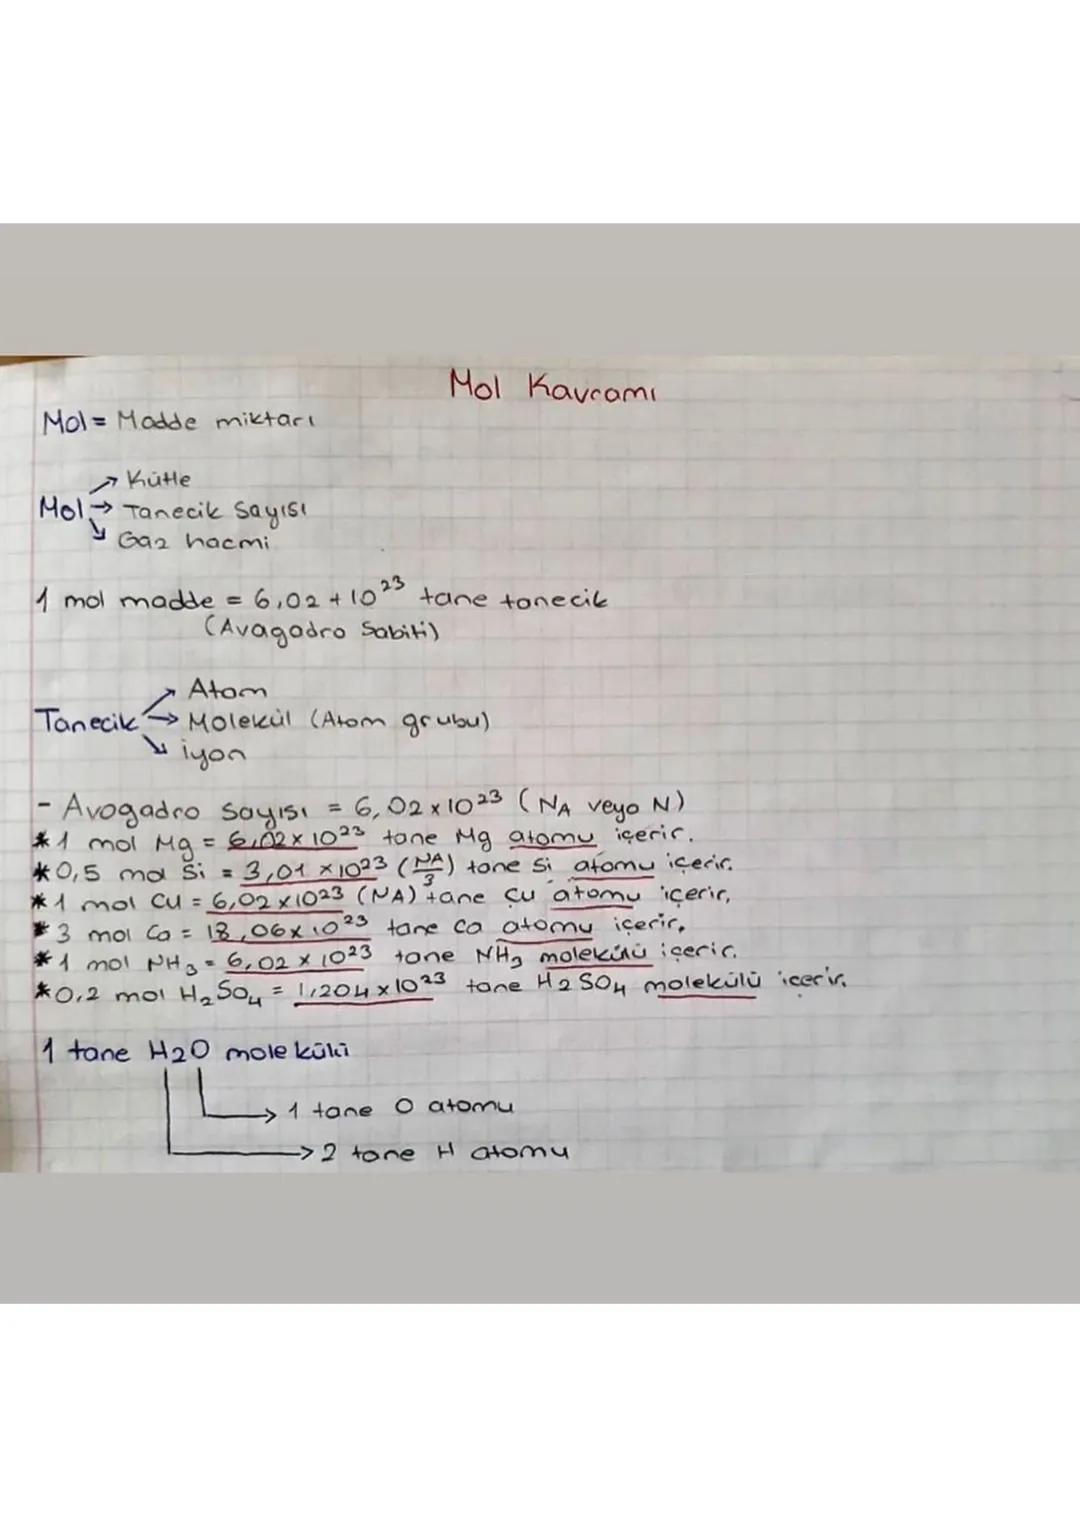 Mol Kavramı
Mol = Madde miktarı
→ Kütle
Mol → Tanecik Sayısı
↘ Gaz hacmi
1 mol madde = 6,02 + 10²³ tane tanecik
(Avagadro Sabiti)
→ Atom
Tanecik → Molekül (Atom grubu)
↘ iyon
- Avogadro sayısı = 6,02 x 10²³ (NA veya N)
* 1 mol Mg = 6,02 x 10²³ tane Mg atomu içerir.
* 0,5 mol Si = 3,01 x 10²³ (NA/3) tane Si atomu içerir.
* 1 mol Cu = 6,02 x 10²³ (NA) tane Çu atomu içerir,
* 3 mol Ca = 18,06 x 10²³ tane ca atomu içerir.
* 1 mol NH₃ = 6,02 x 10²³ tane NH₃ molekülü içerir.
* 0,2 mol H₂SO₄ = 1,204 x 10²³ tane H₂SO₄ molekülü içerir.
1 tane H₂O molekülü
→ 1 tane O atomu
→ 2 tane H atomu